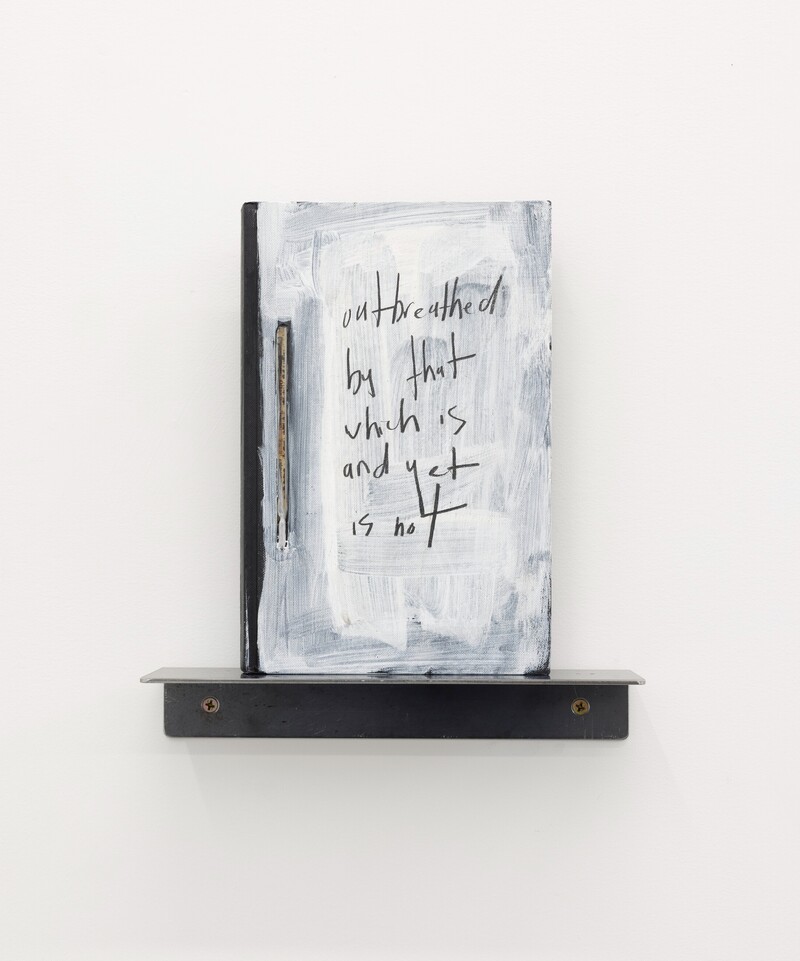 outbreathed
by that
which is
and yet
is not